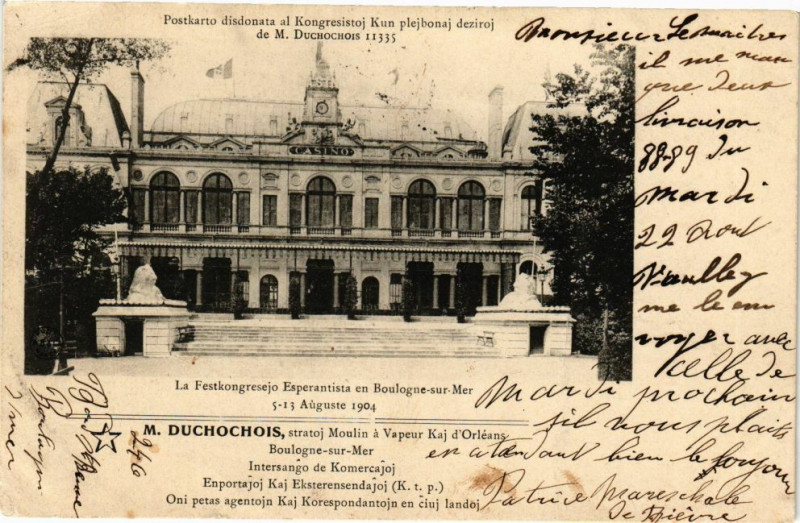 Postkarto disdonata al Kongresistoj Kun plejbonaj deziroj
de M. DUCHOCHOIS 11335
CASINO
La Festkongresejo Esperantista en Boulogne-sur-Mer
5-13 Aùguste 1904
M. DUCHOCHOIS, stratoj Moulin à Vapeur Kaj d'Orléans
Boulogne-sur-Mer
Intersango de Komercajoj
Enportajoj Kaj Eksterensendajoj (K. t. p.)
Oni petas agentojn Kaj Korespondantojn en ciuj landoj
Monsieur Lemaitre
il me man
que deux
livraison
88-89 du
mardi
22 Aout
me le en
voyer avec
celle de
mardi prochain
sil vous plaits
en atandant bien le
Patrice Mareschal
de Bièvre
246